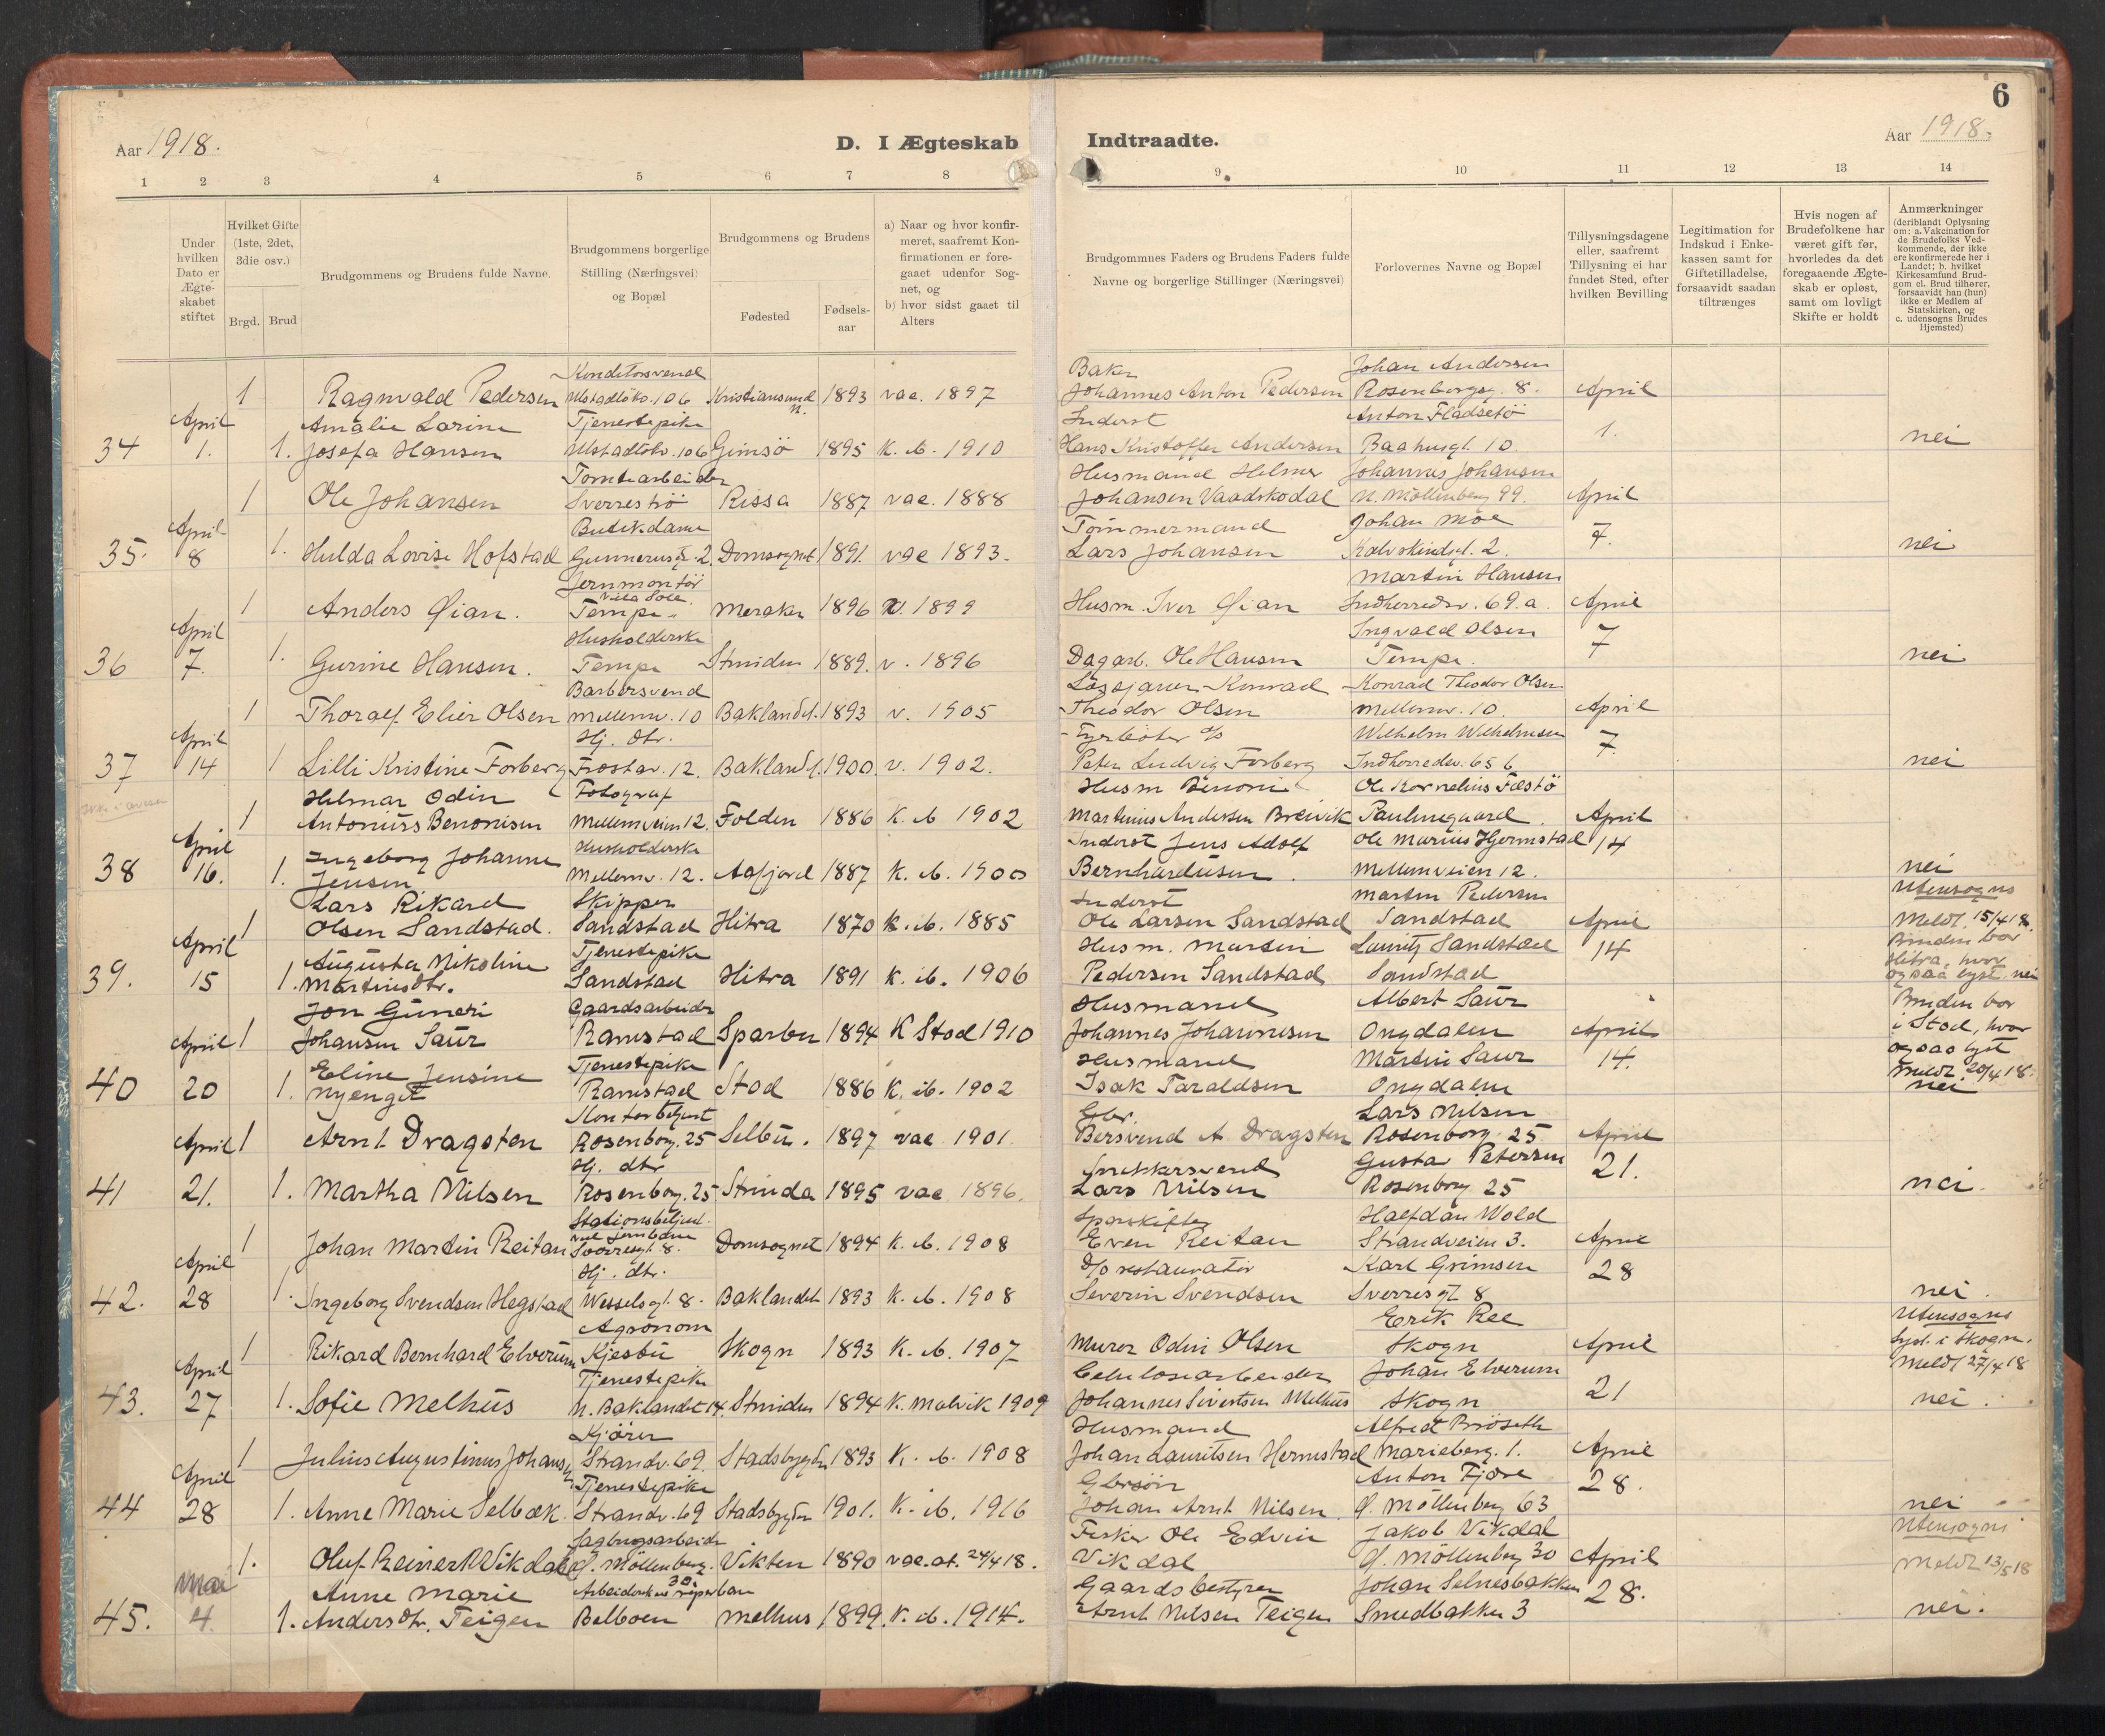 6
Aar 1918.
D. I Ægteskab
Indtraadte.
Aar 1918.
1 2 3 4 5 6 7 8
9 10 11 12 13 14
Under hvilken Dato er Ægteskabet stiftet
Hvilket Gifte (1ste, 2det, 3die osv.)
Brgd. Brud
Brudgommens og Brudens fulde Navne.
Brudgommens borgerlige Stilling (Næringsvei) og Bopæl
Brudgommens og Brudens
Fødested
Fødsels-aar
a) Naar og hvor konfirmeret, saafremt Konfirmationen er foregaaet udenfor Sognet, og
b) hvor sidst gaaet til Alters
Brudgommnes Faders og Brudens Faders fulde Navne og borgerlige Stillinger (Næringsvei)
Forlovernes Navne og Bopæl
Tillysningsdagene eller, saafremt Tillysning ei har fundet Sted, efter hvilken Bevilling
Legitimation for Indskud i Enkekassen samt for Giftetilladelse, forsaavidt saadan tiltrænges
Hvis nogen af Brudefolkene har været gift før, hvorledes da det foregaaende Ægteskab er opløst, samt om lovligt Skifte er holdt
Anmærkninger (deriblandt Oplysning om: a. Vakcination for de Brudefolks Vedkommende, der ikke ere konfirmerede her i Landet; b. hvilket Kirkesamfund Brudgom el. Brud tilhører, forsaavidt han (hun) ikke er Medlem af Statskirken, og c. udensogns Brudes Hjemsted)
Konditorsvend Baker Johan Andersen
1 Ragnvald Pedersen Ulstadløkv. 106 Kristiansund n. 1893 vac. 1897 Johannes Anton Pedersen Rosenborgg. 8. April
April Amalie Larine Tjenestepike Inderst Anton Fladsetö
34 1. 1. Josefa Hansen Ulstadlökv. 106 Gimsö 1895 K. ib. 1910 Hans Kristoffer Andersen Baahusgt. 10. 1. nei
Tomtearbeider Husmand Helmer Johannes Johansen
1 Ole Johansen Sverreströ Rissa 1887 vac. 1888 Johansen Vaadskodal N. Möllenberg 99. April
April Butikdame Tömmermand Johan Moe
35. 8 1. Hulda Lovise Hofstad Gunnerusgt. 2. Domsognet 1891. vac 1893. Lars Johansen Kalvskindgt. 2. 7. nei
Jernmontör Martin Hansen
1 Anders Øian. Tempe Meraker 1896 v. 1899 Husm. Iver Øian Indherredsv. 69.a. April
April Husholderske Ingvald Olsen
36 7. 1. Gurine Hansen. Tempe Strinden 1889. v. 1896 Dagarb. Ole Hansen Tempe. 7 nei
Barbersvend Løssjauer Konrad Konrad Theodor Olsen
1 Thoralf Elier Olsen Mellemv. 10 Baklandet. 1893 v. 1905 Theodor Olsen Mellemv. 10. April
April Hj. dtr. Fyrböter Wilhelm Wilhelmsen
37 14 1 Lilli Kristine Forberg Frostav. 12. Bakland. 1900. v. 1902. Peter Ludvig Forberg Indherredsv. 65 b 7. nei
Helmar Odin Fotograf Husm Benoni Ole Kornelius Fæstö
1 Antonius Benonisen Mellemveien 12. Folden 1886 K. ib 1902 Martinus Andersen Breivik Paulinegaard. April
April Ingeborg Johanne Husholderske Inderst Jens Adolf Ole Marius Hjermstad 14
38 16. 1. Jensen Mellemv. 12. Aafjord 1887 K. ib. 1900 Bernhardusen. Mellemveien 12. nei
Lars Rikard Skipper Inderst Martin Pedersen Utensogns
1 Olsen Sandstad. Sandstad Hitra 1870 K. ib. 1885 Ole Larsen Sandstad Sandstad April Meldt. 15/4 18.
April Augusta Nikoline Tjenestepike Husm. Martin Lauritz Sandstad 14 Bruden bor
39. 15 1. Martinusdtr. Sandstad Hitra 1891 K. ib. 1906 Pedersen Sandstad Sandstad Hitra, hvor ogsaa lyst. nei
Jon Guneri Gaardsarbeider Husmand Albert Saur Bruden bor
April 1 Johansen Saur Ramstad Sparbu 1894 K Stod 1910 Johannes Johannesen Ongdalen April i Stod, hvor
Eline Jensine Tjenestepike Husmand Martin Saur 14. ogsaa lyst
40 20 1. Nyenget Ramstad Stod 1886 K. ib. 1902 Isak Taraldsen Ongdalen Meldt 20/4 18. nei
Kontorbetjent Gbr. Lars Nilsen
April 1 Arnt Dragsten Rosenborg. 25 Selbu. 1897 vac 1901. Bersvend A. Dragsten Rosenborg 25 April
Hj. dtr Snekkersvend Gustav Petersen
41 21. 1. Martha Nilsen Rosenborg. 25 Strinda 1895 vac. 1896. Lars Nilsen Rosenborg 25 21. nei.
Stationsbetjent ved Jernbanen Sporskifter Halfdan Wold
1 Johan Martin Reitan Sverresgt. 8. Domsognet 1894 K. ib. 1908 Even Reitan Strandveien 3. April
April Hj. dtr. D/o restauratör Karl Grimsen
42. 28 1. Ingeborg Svendsen Hegstad Wesselsgt. 8. Baklandet 1893 K. ib. 1908 Severin Svendsen Sverresgt 8 28 nei.
Agronom Erik Ree Utensogns
1 Rikard Bernhard Elverum Kjesbu Skogn 1893 K. ib. 1907 Murer Odin Olsen Skogn April Lyst. i Skogn.
April Tjenestepike Celulosearbeider Johan Elverum Meldt 27/4 18
43. 27 1. Sofie Melhus N. Baklandet 14. Strinden 1894 K. Malvik 1909 Johannes Sivertsen Melhus Skogn 21 nei.
Kjörer Husmand Alfred Bröseth
1 Julius Augustinus Johansen Strandv. 69. Stadsbygden 1893 K. ib. 1908 Johan Lauritsen Hermstad Marieberg. 1. April
April Tjenestepike Gbrsön Anton Fjære
44 28 1. Anne Marie Selbæk. Strandv. 69 Stadsbygden 1901. K. ib. 1916 Johan Arnt Nilsen. Ø. Möllenberg 63 28. nei
Sagbrugsarbeider Fisker Ole Edvin Jakob Vikdal Utensogns
1. Oluf Reinert Vikdal Ø. Möllenberg. 30 Vikten 1890 vac. at. 24/4 18. Vikdal Ø. Möllenberg 30 April Meldt 13/5 18
Mai Anne Marie Gaardsbestyrer Johan Selnesbakken
45. 4. 1. Andersdtr. Teigen Belboen Melhus 1899. K. ib. 1914. Arnt Nilsen Teigen Smedbakken 3 28. nei.